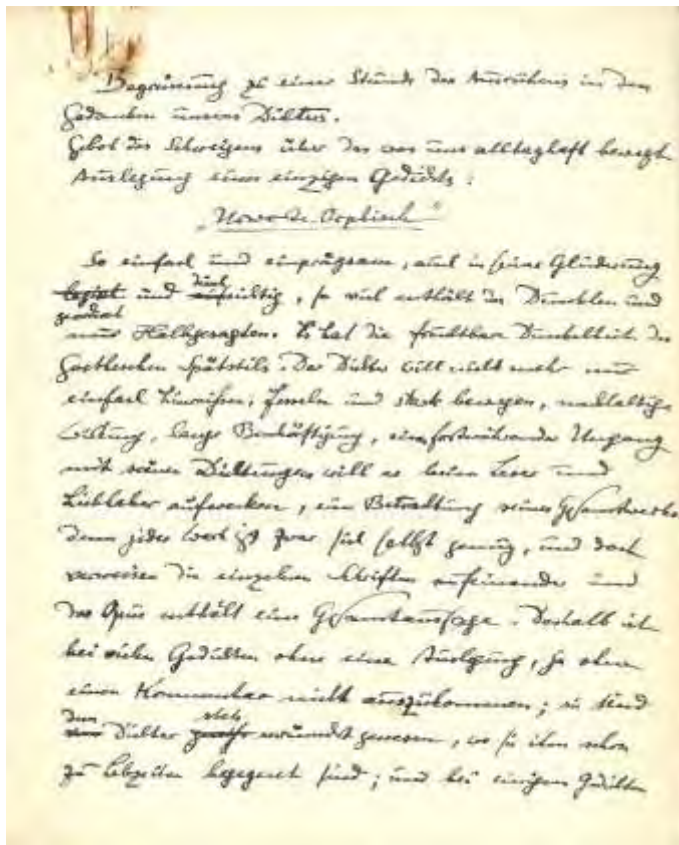 Begrüssung zu einer Stunde des Ausruhens in den
Gedanken unseres Dichters.
Gebot des Schweigens über das was uns alltaghaft bewegt
Auslegung eines einzigen Gedichts:
"Urworte. Orphisch"
So einfach und einprägsam, auch in seine Gliederung
und, so viel enthält es Dunkles und
nur Halbgesagtes. Es hat die fruchtbare Dunkelheit des
Goetheschen Spätstils. Der Dichter will nicht mehr nur
einfach hinreißen, fesseln und stark bewegen, nachhaltige
Wirkung, lange Beschäftigung, einen fortwährenden Umgang
mit seinen Dichtungen will er beim Leser und
Liebhaber aufwecken, eine Betrachtung seines Gesamtwerks
denn jedes Werk ist zwar sich selbst genug, und doch
verweisen die einzelnen Schriften aufeinander und
das Opus enthält eine Gesamtaussage. Deshalb ist
bei vielen Gedichten ohne eine Auslegung, ja ohne
einen Kommentar nicht auszukommen; sie sind
dem Dichter stets erwünscht gewesen, wo sie ihm schon
zu Lebzeiten begegnet sind; und bei einigen Gedichten